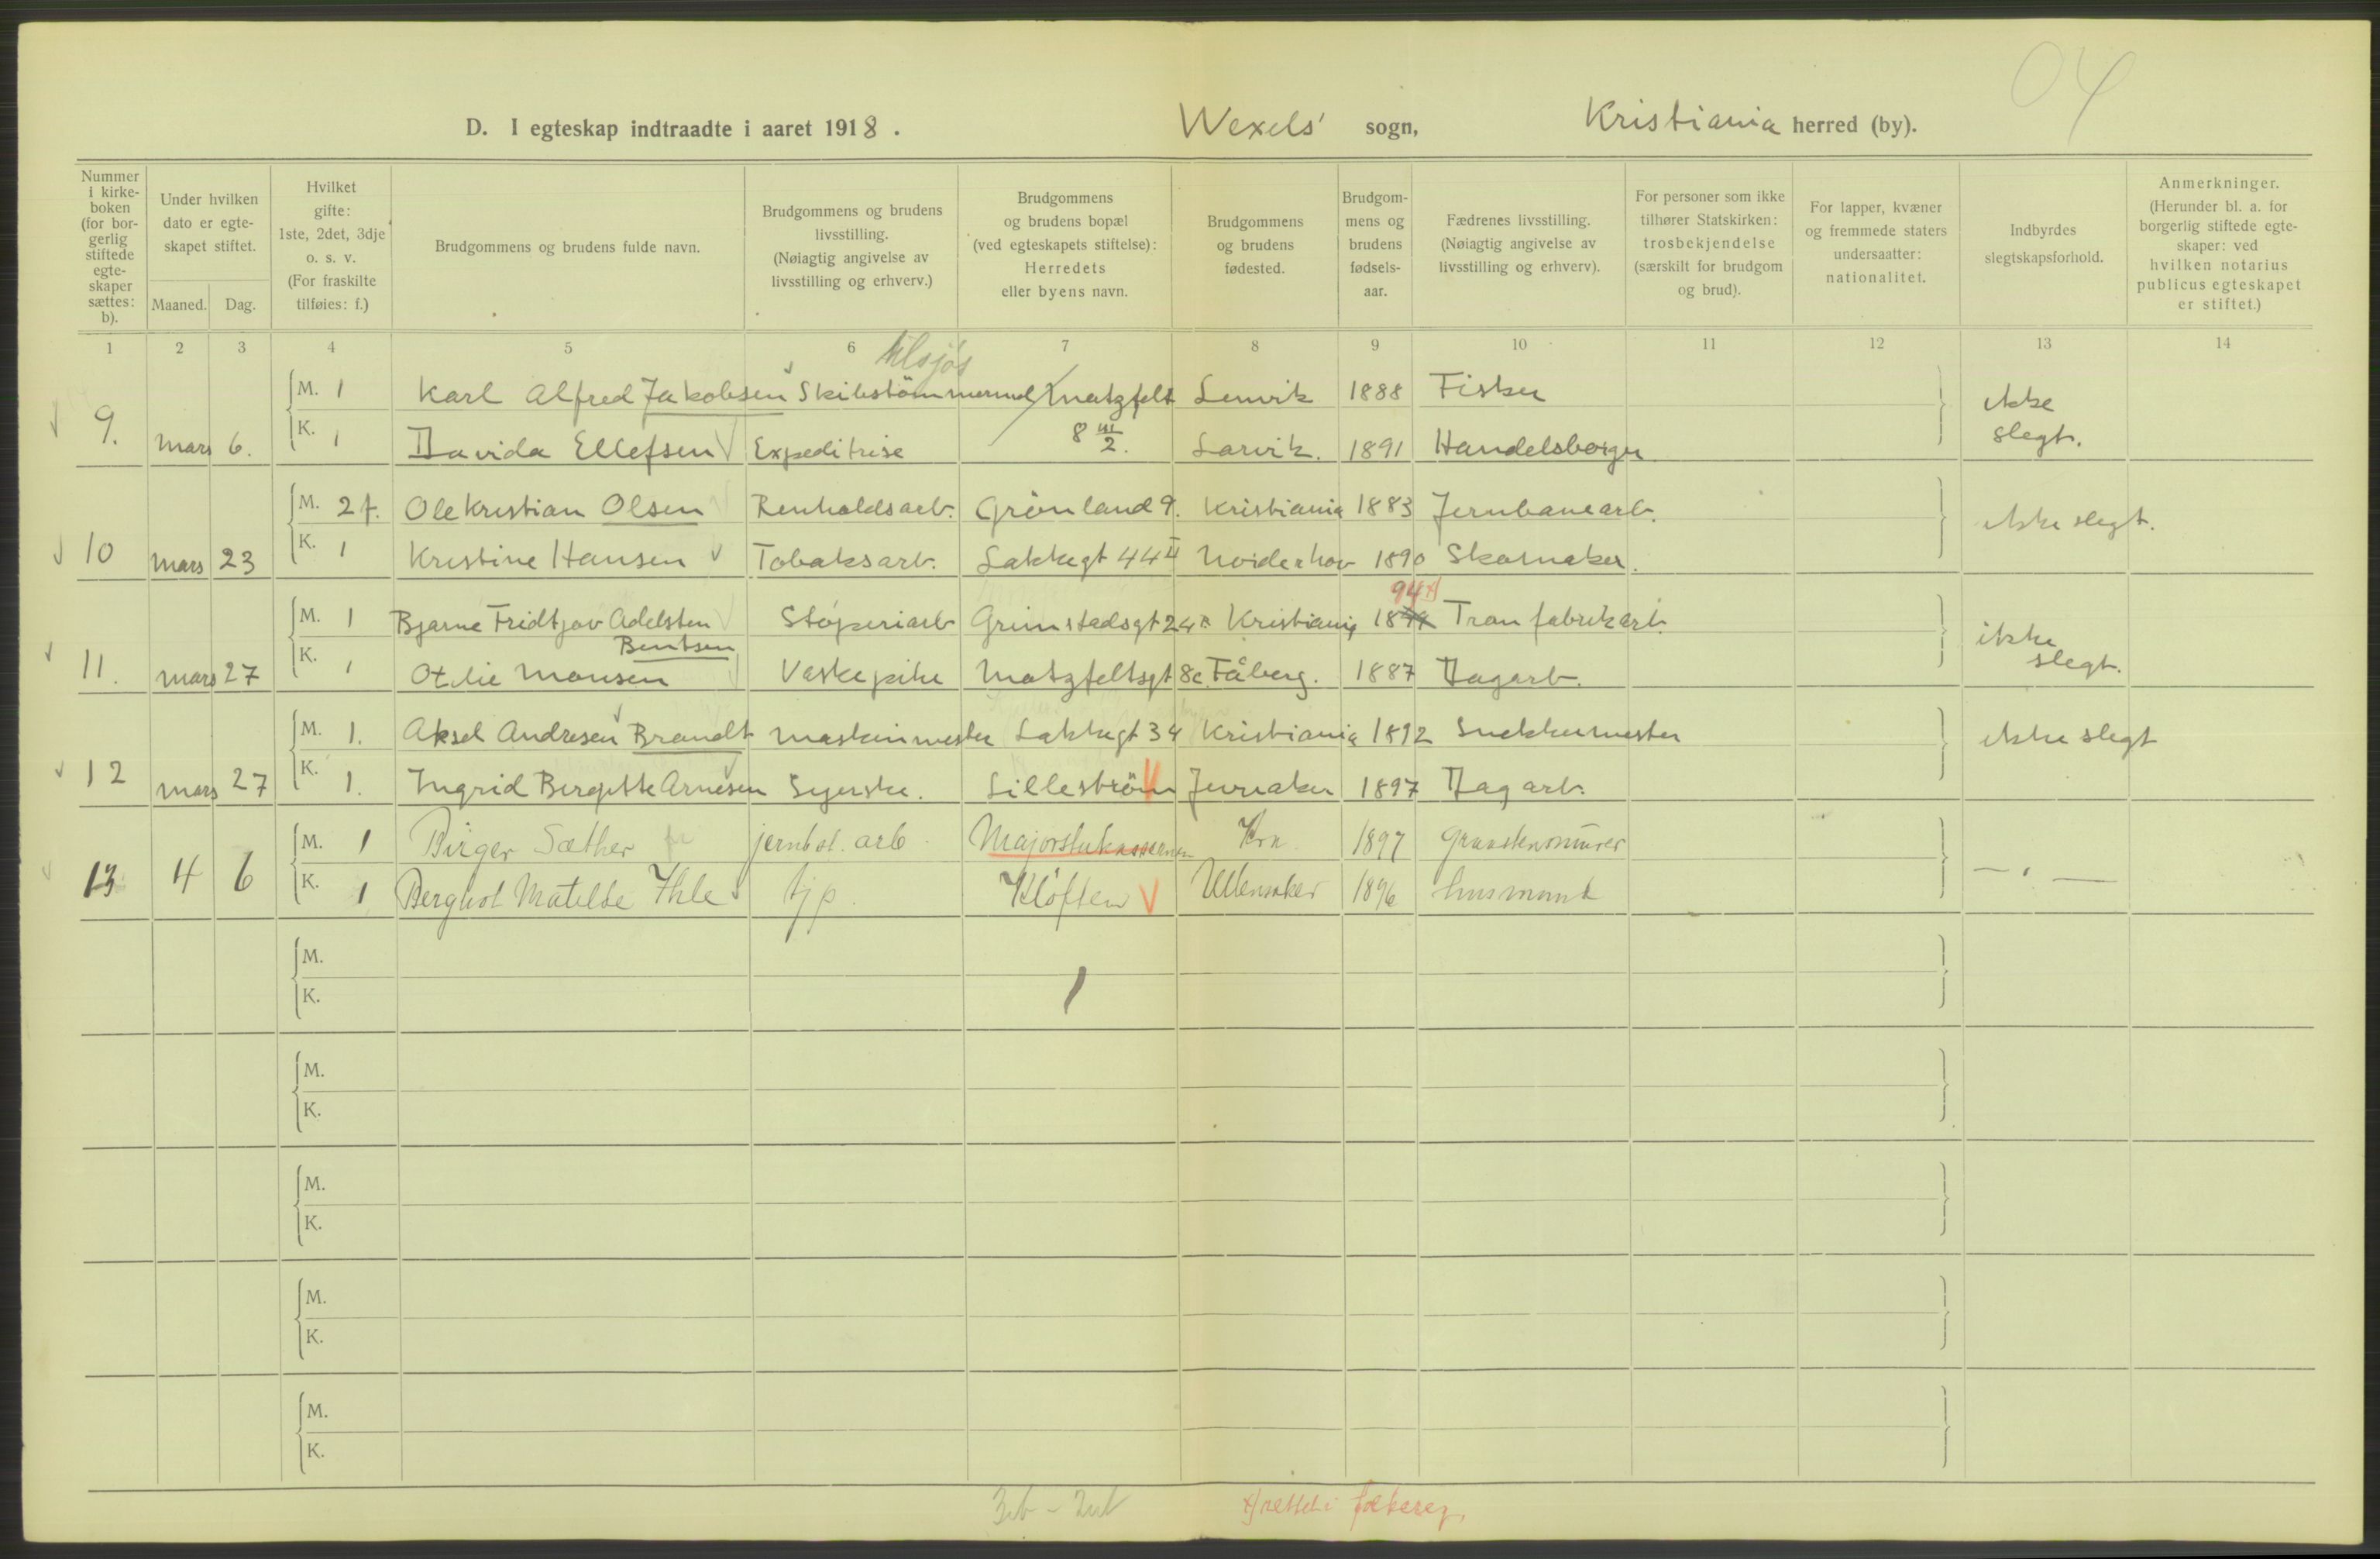 04
D. I egteskap indtraadte i aaret 1918. Wexels' sogn, Kristiania herred (by).
Nummer i kirke-boken (for bor-gerlig stiftede egte-skaper sættes: b).
Under hvilken dato er egte-skapet stiftet.
Maaned. Dag.
Hvilket gifte: 1ste, 2det, 3dje o. s. v. (For fraskilte tilføies: f.)
Brudgommens og brudens fulde navn.
Brudgommens og brudens livsstilling. (Nøiagtig angivelse av livsstilling og erhverv.)
Brudgommens og brudens bopæl (ved egteskapets stiftelse): Herredets eller byens navn.
Brudgommens og brudens fødested.
Brudgom-mens og brudens fødsels-aar.
Fædrenes livsstilling. (Nøiagtig angivelse av livsstilling og erhverv).
For personer som ikke tilhører Statskirken: trosbekjendelse (særskilt for brudgom og brud).
For lapper, kvæner og fremmede staters undersaatter: nationalitet.
Indbyrdes slegtskapsforhold.
Anmerkninger. (Herunder bl. a. for borgerlig stiftede egte-skaper: ved hvilken notarius publicus egteskapet er stiftet.)
1 2 3 4 5 6 7 8 9 10 11 12 13 14
tilsjøs
M. 1 Karl Alfred Jakobsen Skibstömmermd Motzfelt Lenvik 1888 Fisker ikke
9. mars 6. K. 1 Davida Ellefsen Expeditrise 8 III/2. Larvik. 1891 Handelsborger slegt.
M. 2 f. Ole Kristian Olsen Renholdsarb. Grönland 9. Kristiania 1883 Jernbanearb. ikke slegt.
10 mars 23 K. 1 Kristine Hansen Tobaksarb. Lakkegt 44 II Norderhov 1890 Skomaker.
94 x)
M. 1 Bjarne Fridtjov Adelsten Stöperiarb Grimstadsgt 24 Kristiania 18 Tranfabrikarb. ikke
Bentsen
11. mars 27 K. 1 Otilie Monsen Vaskepike Motzfeltsgt 8c. Fåberg. 1887 Dagarb. slegt.
M. 1. Aksel Andresen Brandt maskinmester Lakkegt 34 Kristiania 1892 Snekkermester ikke slegt
12 mars 27 K. 1. Ingrid Bergitte Arnesen Syerske. Lilleström Jevnaker 1897 Dagarb.
M. 1 Birger Sæther jernbst. arb. Majorstukasernen Kra 1897 Graastensmurer
13 4 6 K. 1 Berghot Matilde Ihle tjp. Klöften Ullensaker 1896 husmand — " —
M.
K. 1
M.
K.
M.
K.
M.
K.
M.
K.
x) rettet i folkereg.